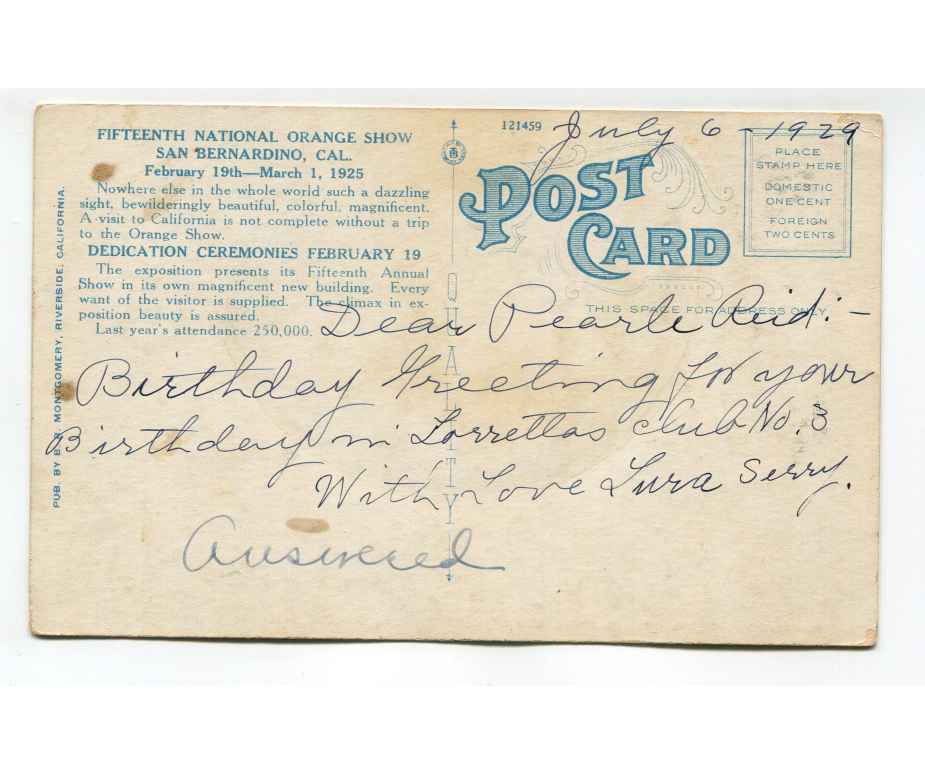 FIFTEENTH NATIONAL ORANGE SHOW
SAN BERNARDINO, CAL.
February 19th—March 1, 1925
Nowhere else in the whole world such a dazzling
sight, bewilderingly beautiful, colorful, magnificent.
A visit to California is not complete without a trip
to the Orange Show.
DEDICATION CEREMONIES FEBRUARY 19
The exposition presents its Fifteenth Annual
Show in its own magnificent new building. Every
want of the visitor is supplied. The climax in ex-
position beauty is assured.
Last year's attendance 250,000.
PUB. BY MONTGOMERY, RIVERSIDE, CALIFORNIA.
QUALITY
121459
July 6 - 1929
POST
CARD
PLACE
STAMP HERE
DOMESTIC
ONE CENT
FOREIGN
TWO CENTS
THIS SPACE FOR ADDRESS ONLY
Dear Pearle Reid:-
Birthday Greeting for your
Birthday in Lorrettas Club No. 3
With Love Lura Serry.
Answered